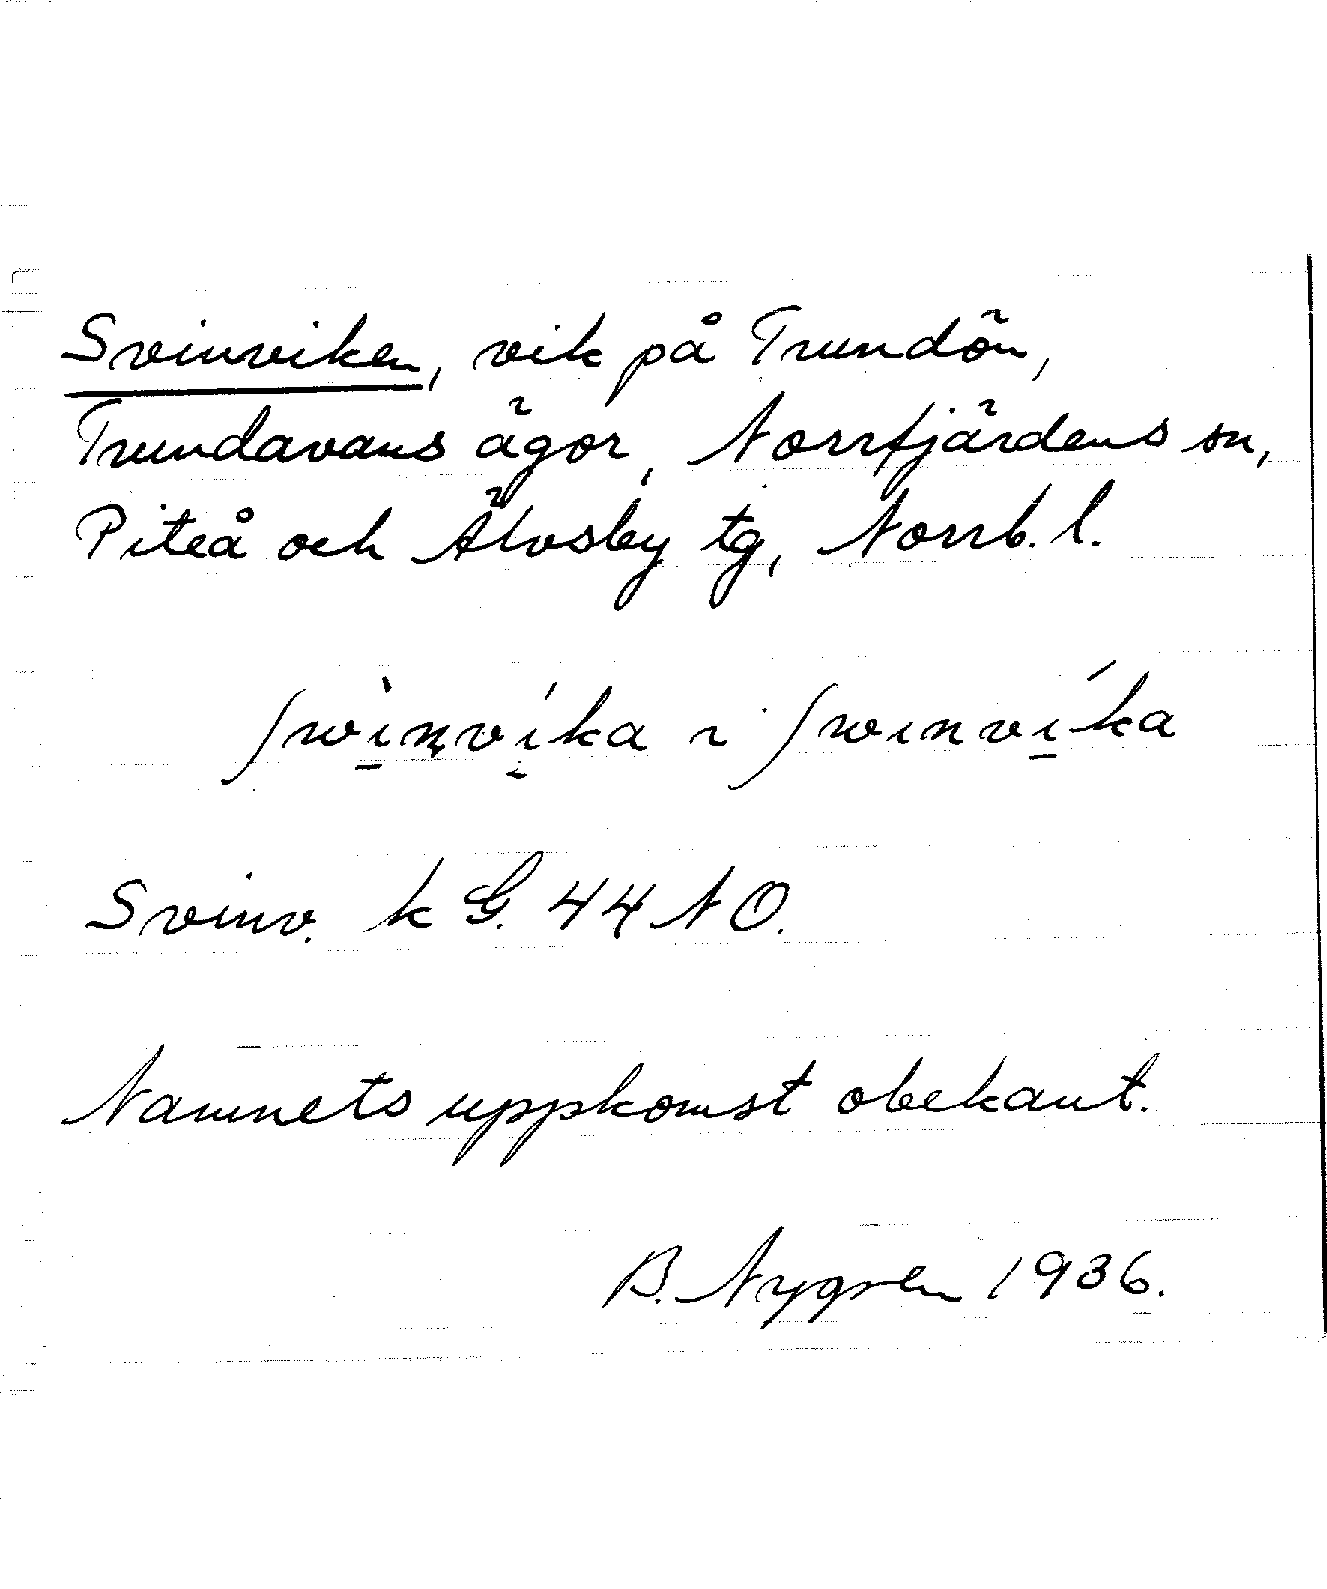 Svinviken, vik på Trundön,
Trundavans ägor, Norrfjärdens sn,
Piteå och Älvsby tg, Norrb. l.
ʃwìnvíka i ʃwınvíka
Svinv. k G. 44 NO.
Namnets uppkomst obekant.
B. Nygren 1936.